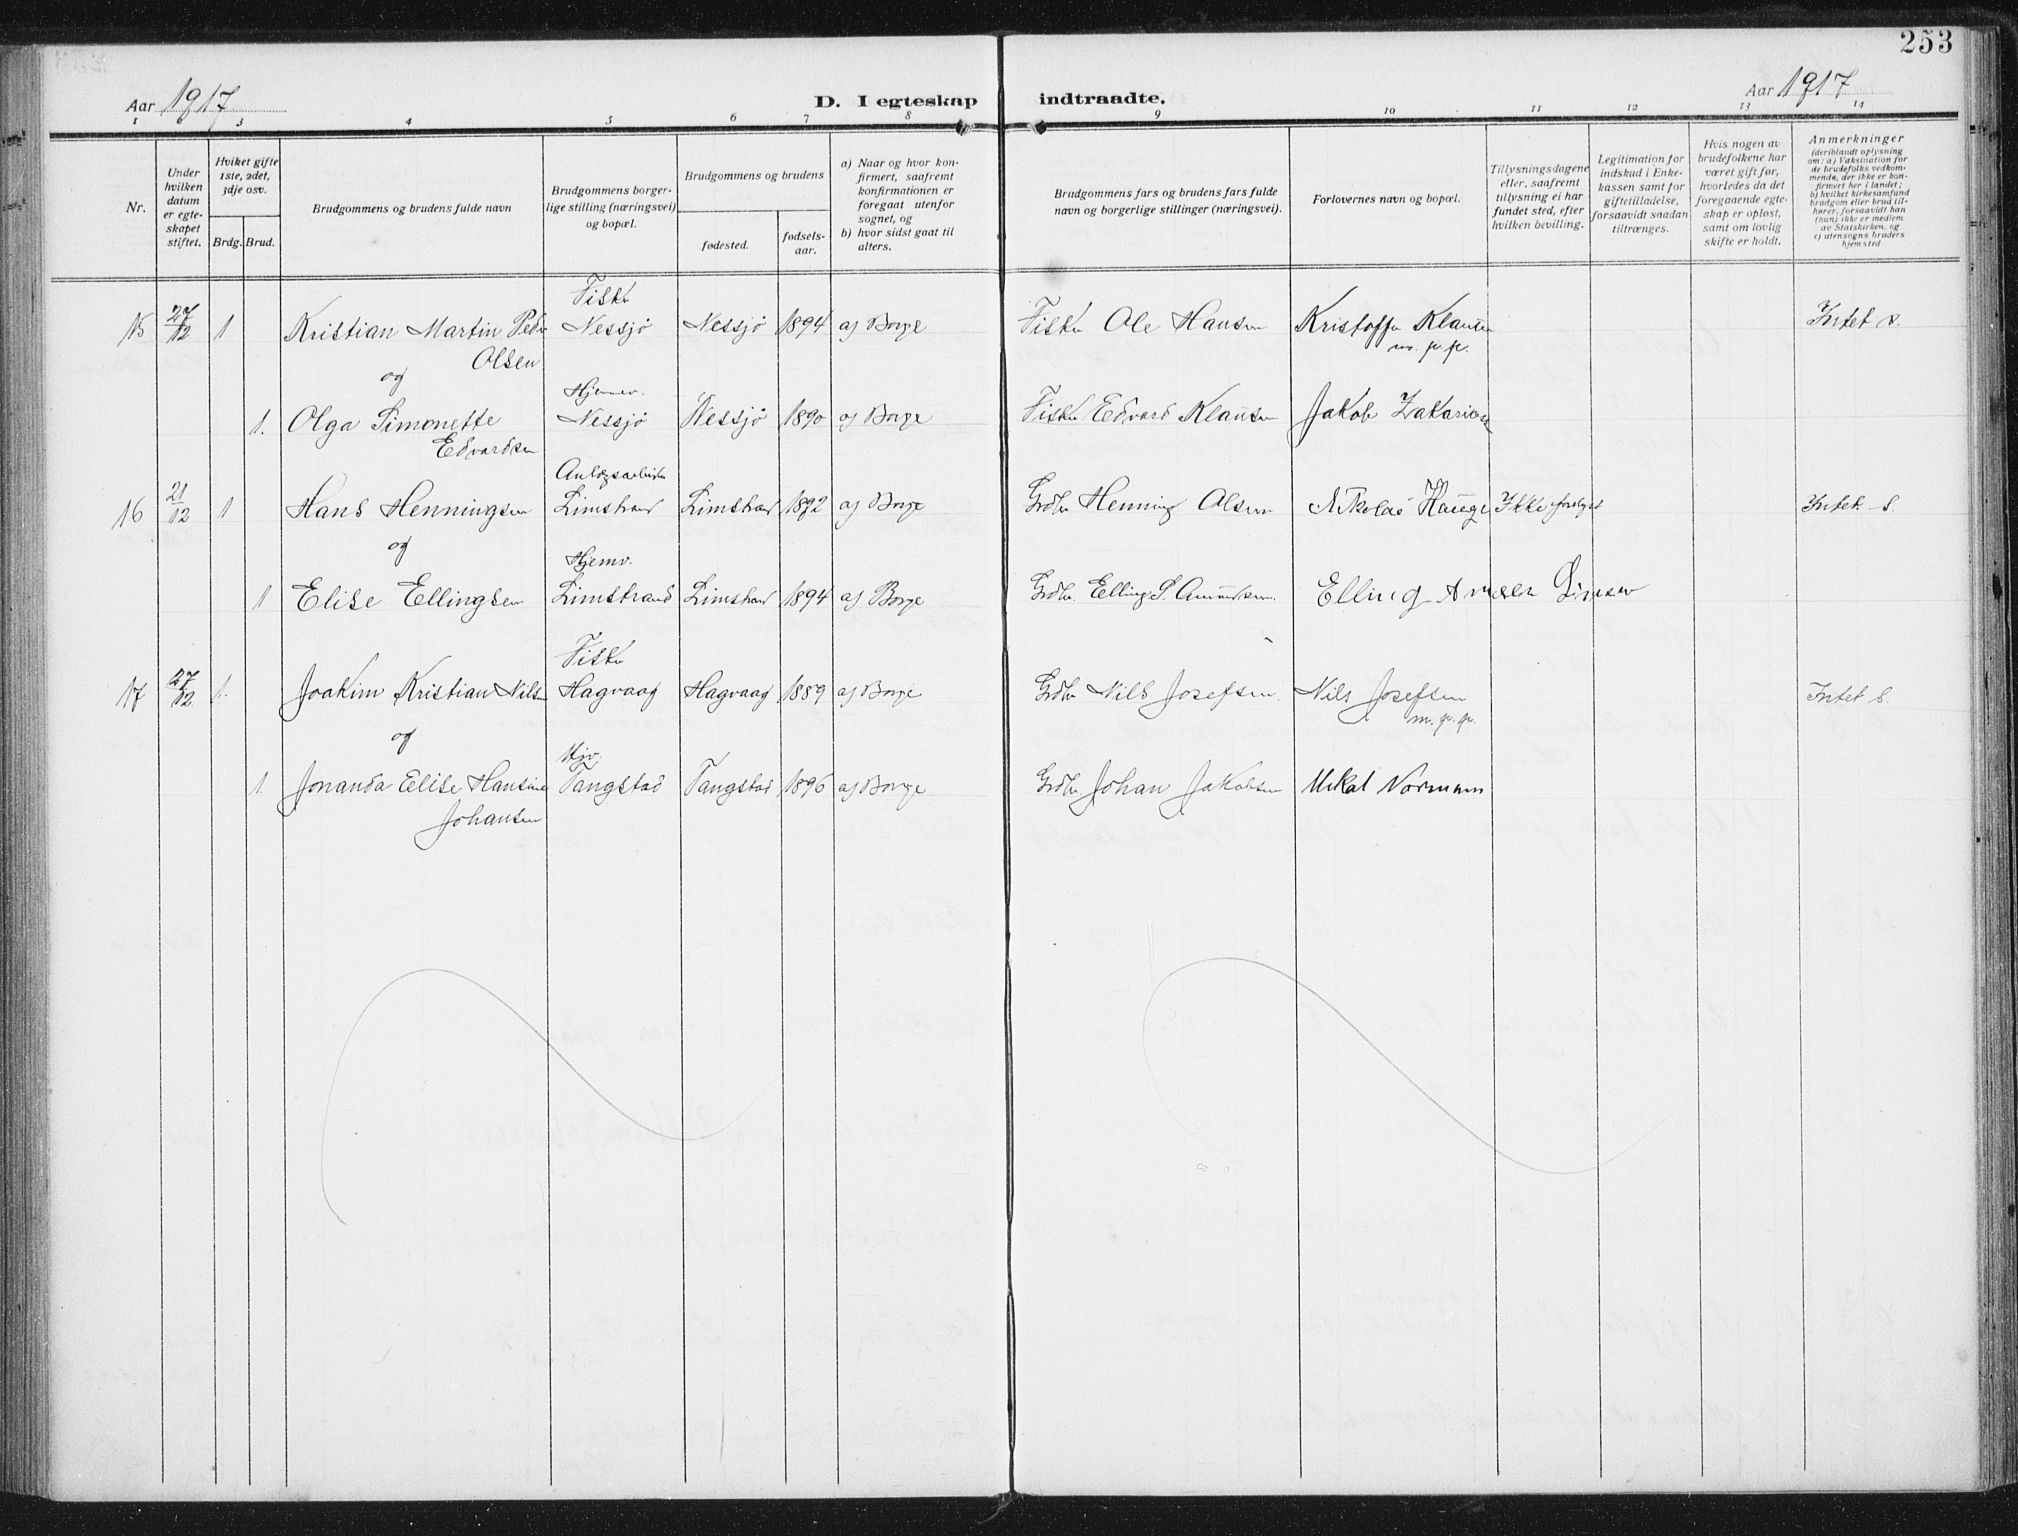 253
Aar 1917
D. I egteskap indtraadte.
Aar 1917
1 2 3 4 5 6 7 8 9 10 11 12 13 14
Nr.
Under hvilken datum er egteskapet stiftet.
Hvilket gifte 1ste, 2det, 3dje osv.
Brdg. Brud.
Brudgommens og brudens fulde navn
Brudgommens borgerlige stilling (næringsvei) og bopæl.
Brudgommens og brudens
fødested.
fødselsaar.
a) Naar og hvor konfirmert, saafremt konfirmationen er foregaat utenfor sognet, og
b) hvor sidst gaat til alters.
Brudgommens fars og brudens fars fulde navn og borgerlige stillinger (næringsvei).
Forlovernes navn og bopæl.
Tillysningsdagene eller, saafremt tillysning ei har fundet sted, efter hvilken bevilling.
Legitimation for indskud i Enkekassen samt for giftetilladelse, forsaavidt saadan tiltrænges.
Hvis nogen av brudefolkene har været gift før, hvorledes da det foregaaende egteskap er opløst, samt om lovlig skifte er holdt.
Anmerkninger
(deriblandt oplysning om: a) Vaksination for de brudefolks vedkommende, der ikke er konfirmert her i landet; b) hvilket kirkesamfund brudgom eller brud tilhører, forsaavidt han (hun) ikke er medlem av Statskirken, og c) utensogns bruders hjemsted
Fisker
15 27/12 1 Kristian Martin Peder Nessjø Nessjø 1894 af Borge Fisker Ole Hansen Kristoffer Klausen Intet s.
Olsen m. p. p.
og
Hjemv.
1. Olga Simonette Nessjø Nessjø 1890 af Borge Fisker Edvard Klausen Jakob Zakariasen
Edvardsen
Anlægsarbeider
16 21/12 1 Hans Henningsen Limstrand Limstrand 1892 af Borge Grdbr Henning Olsen Nikolai Hauge Ikke forelyst Intet s.
og
Hjemv.
1 Elise Ellingsen Limstrand Limstrand 1894 af Borge Grdbr. Elling P. Amundsen. Elling
Fisker
17 27/12 1. Joakim Kristian Nilsen Hagvaag Hagvaag 1889 af Borge Grdbr Nils Josefsen. Nils Josefsen Intet s.
m. p. p.
og
Hjv.
1. Jonanda Elise Hansine Tangstad Tangstad 1896 af Borge Grdbr. Johan Jakobsen Mikal Normann
Johansen